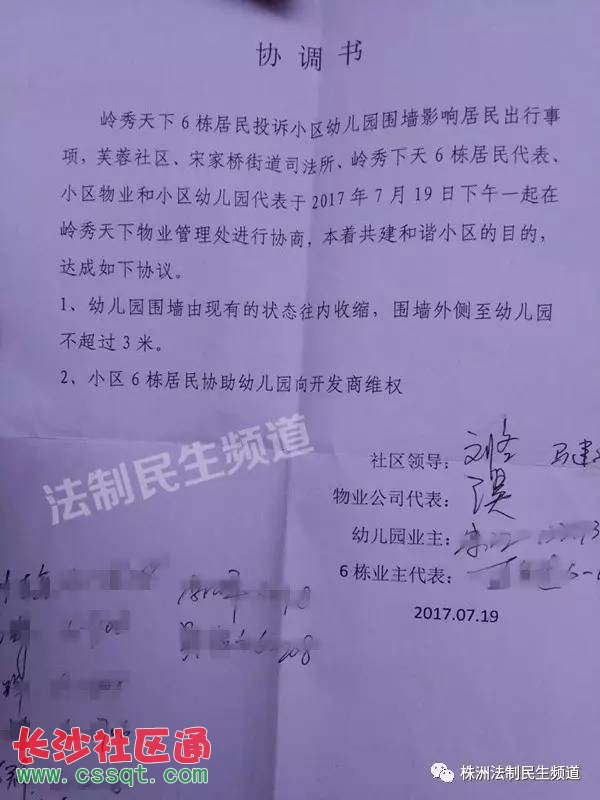 协调书
岭秀天下6栋居民投诉小区幼儿园围墙影响居民出行事
项，芙蓉社区、宋家桥街道司法所、岭秀下天6栋居民代表、
小区物业和小区幼儿园代表于2017年7月19日下午一起在
岭秀天下物业管理处进行协商，本着共建和谐小区的目的，
达成如下协议。
1、幼儿园围墙由现有的状态往内收缩，围墙外侧至幼儿园
不超过3米。
2、小区6栋居民协助幼儿园向开发商维权
社区领导：
物业公司代表：
幼儿园业主：
6栋业主代表：
2017.07.19
法制民生频道
长沙社区通
www.cssqt.com
株洲法制民生频道